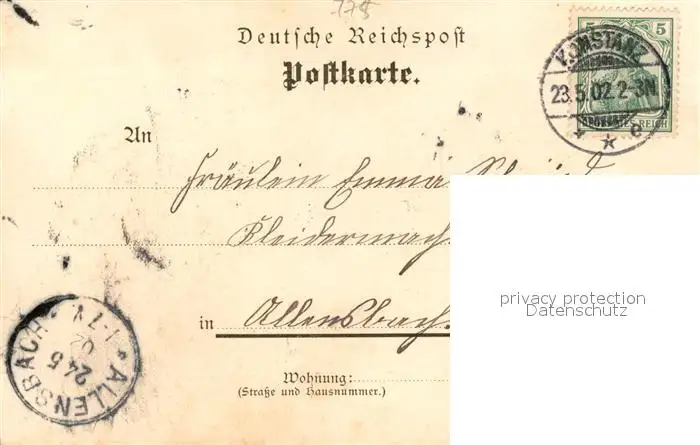 175
Deutsche Reichspost
Postkarte.
5
KONSTANZ
23.5.02.2-3N
* * c
REICH
An
Fräulein Emma
Kleidermach
in Allensbach.
privacy protection
Datenschutz
ALLENSBACH
24 5
02
1-7V
Wohnung:
(Straße und Hausnummer.)